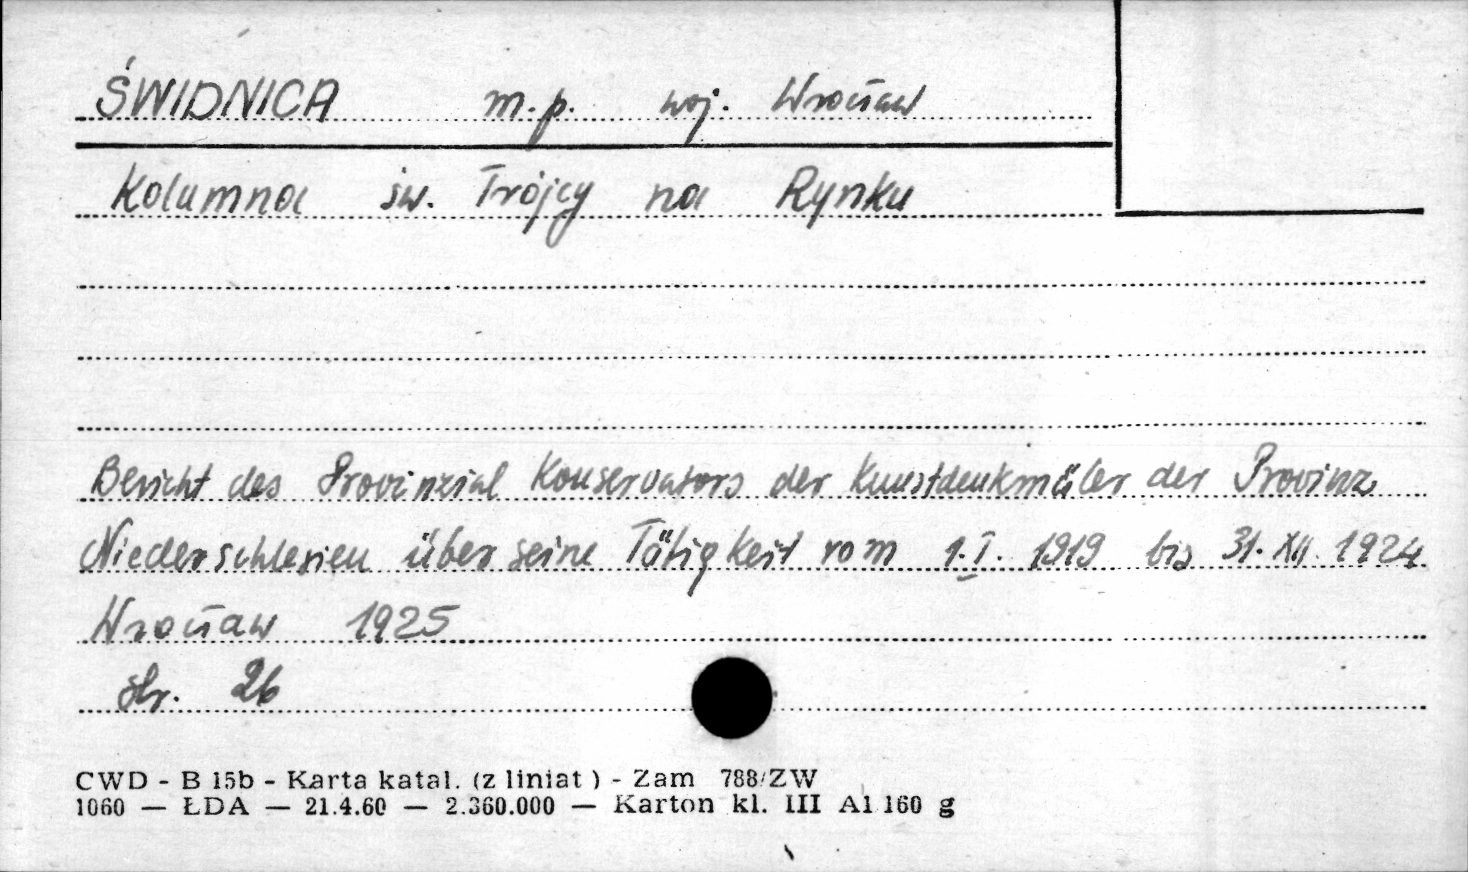 ŚWIDNICA m.p. woj. Wrocław
Kolumna św. Trójcy na Rynku
Bericht des Provinzial Konservators der Kunstdenkmäler der Provinz
Niederschlesien über seine Tätigkeit vom 1.I. 1919 bis 31.XII.1924
Wrocław 1925
str. 26
CWD - B 15b - Karta katal. (z liniat ) - Zam 788/ZW
1060 — ŁDA — 21.4.60 — 2.360.000 — Karton kl. III A1 160 g